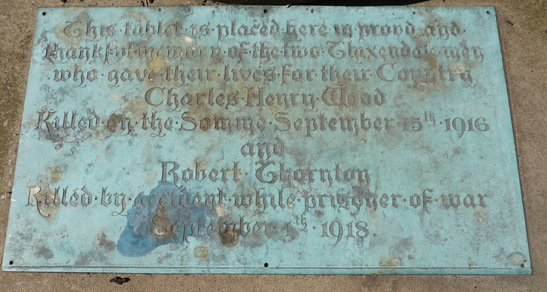 This · tablet · is · placed · here · in · proud · and ·
thankful · memory · of · the · two · Thixendale · men
who · gave · their · lives · for · their · Country ·
Charles · Henry · Wood
Killed · on · the · Somme · September · 15th · 1916
and
Robert · Thornton
Killed · by · accident · while · prisoner · of · war
September · 1th · 1918 ·